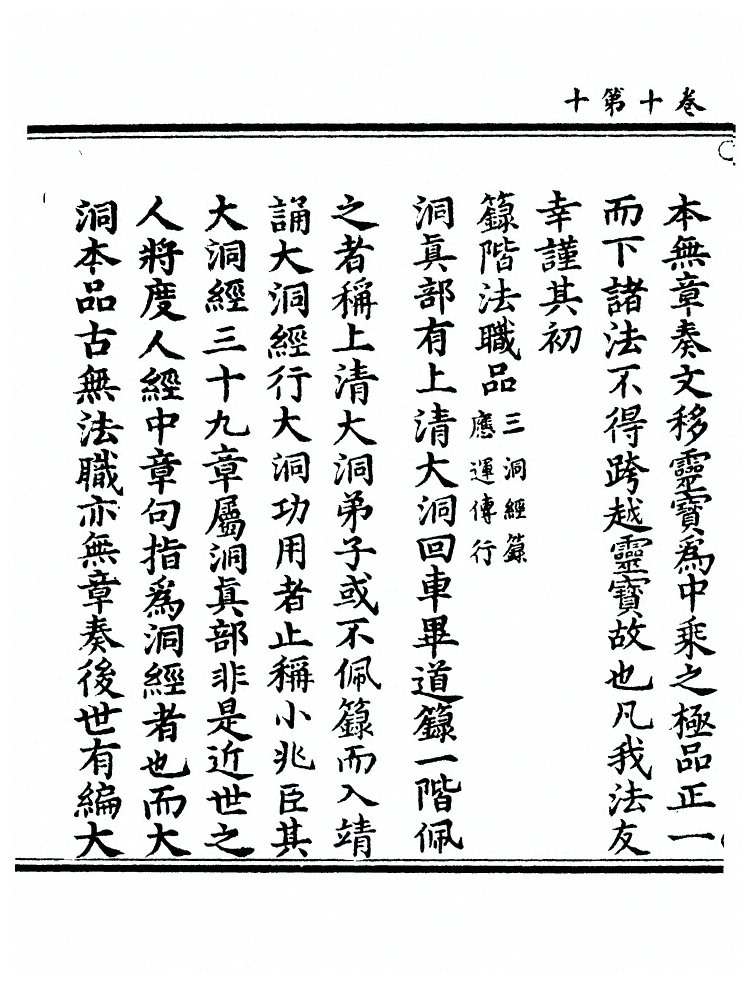 卷十第十
本無章奏文移靈寶爲中乘之極品正一
而下諸法不得跨越靈寶故也凡我法友
幸謹其初
籙階法職品三洞經籙
應運傳行
洞眞部有上清大洞回車畢道籙一階佩
之者稱上清大洞弟子或不佩籙而入靖
誦大洞經行大洞功用者止稱小兆臣其
大洞經三十九章屬洞眞部非是近世之
人將度人經中章句指爲洞經者也而大
洞本品古無法職亦無章奏後世有編大